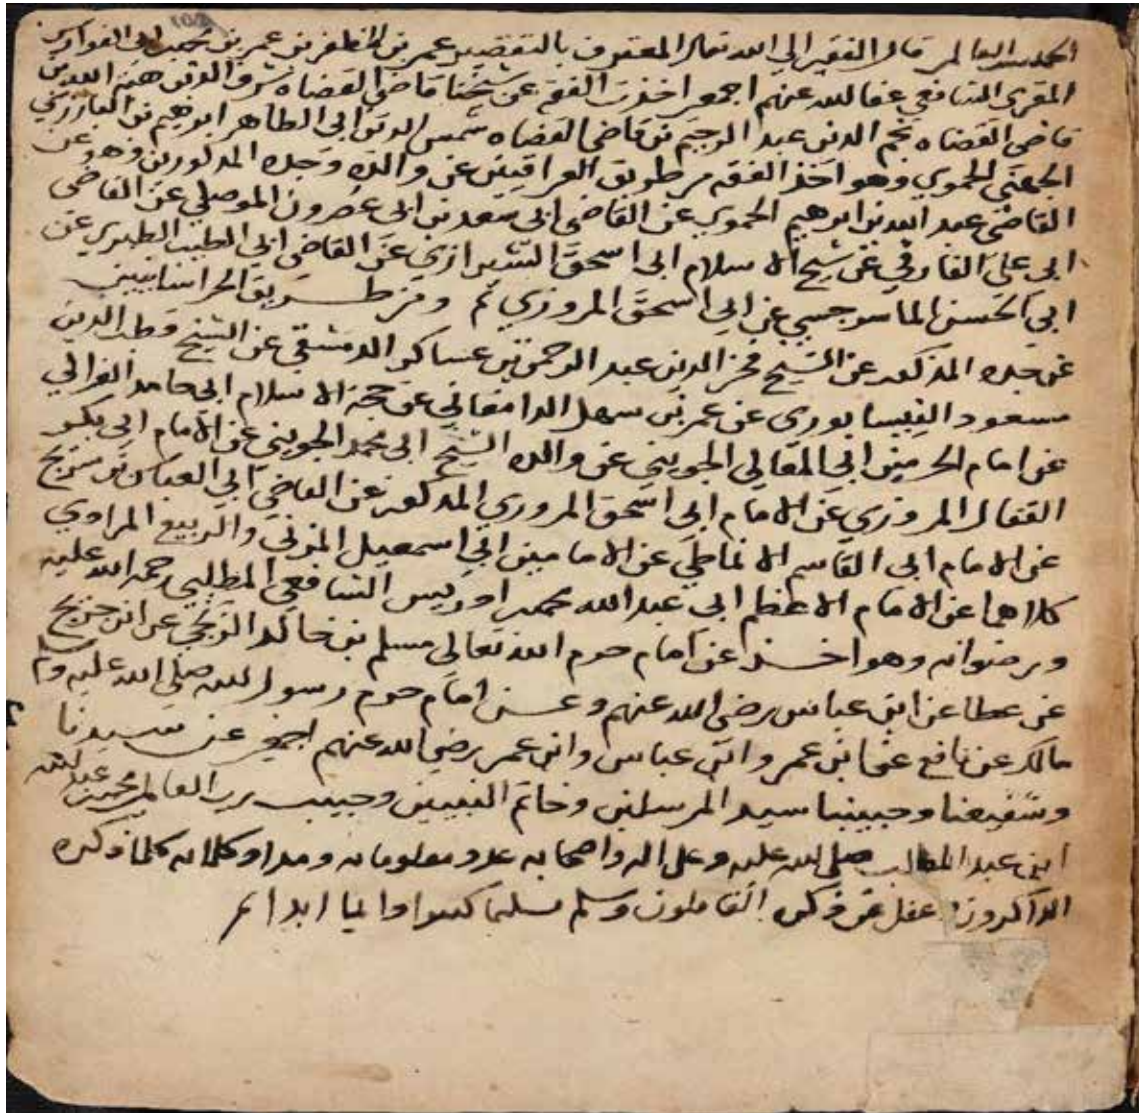 الحمد لله رب العالمين قال الفقير الى الله تعالى المعترف بالتقصير عمر بن المظفر بن عمر بن محمد ابي الفوارس
المعري الشافعي عفا الله عنهم اجمعين اخذت الفقه عن شيخنا قاضي القضاه شرف الدين هبة الله بن
قاضي القضاه نجم الدين عبد الرحيم بن قاضي القضاه شمس الدين ابي الطاهر ابرهيم بن البارزي
الجهني الحموي وهو اخذ الفقه من طريق العراقيين عن والده وجده المذكورين وهو عن
القاضي عبد الله بن ابرهيم الحموي عن القاضي ابي سعد بن ابي عصرون الموصلي عن القاضي
ابي علي الفارقي عن شيخ الاسلام ابي اسحق الشيرازي عن القاضي ابي الطيب الطبري عن
ابي الحسن الماسرجسي عن ابي اسحق المروزي ومن طريق الخراسانيين
عن جده المذكور عن الشيخ فخر الدين عبد الرحمن بن عساكر الدمشقي عن الشيخ قطب الدين
مسعود النيسابوري عن عمر بن سهل الدامغاني عن حجة الاسلام ابي حامد الغزالي
عن امام الحرمين ابي المعالي الجويني عن والده الشيخ ابي محمد الجويني عن الامام ابي بكر
القفال المروزي عن الامام ابي اسحق المروزي المذكور عن القاضي ابي العباس بن سريج
عن الامام ابي القاسم الانماطي عن الامامين ابي اسمعيل المزني والربيع المرادي
كلاهما عن الامام الاعظم ابي عبد الله محمد ادريس الشافعي المطلبي رحمة الله عليه
ورضوانه وهو اخذ عن امام حرم الله تعالى مسلم بن خالد الزنجي عن ابن جريج
عن عطا عن ابن عباس رضي الله عنهم وعن امام حرم رسول الله صلى الله عليه وسلم
مالك عن نافع عن ابن عمر وابن عباس وابن عمر رضي الله عنهم اجمعين عن سيدنا
وشفيعنا وحبيبنا سيد المرسلين وخاتم النبيين وحبيب رب العالمين محمد بن عبد الله
ابن عبد المطلب صلى الله عليه وعلى اله واصحابه عدد معلوماته ومداد كلماته كلما ذكره
الذاكرون وغفل عن ذكره الغافلون وسلم تسليما كثيرا دايما ابدا